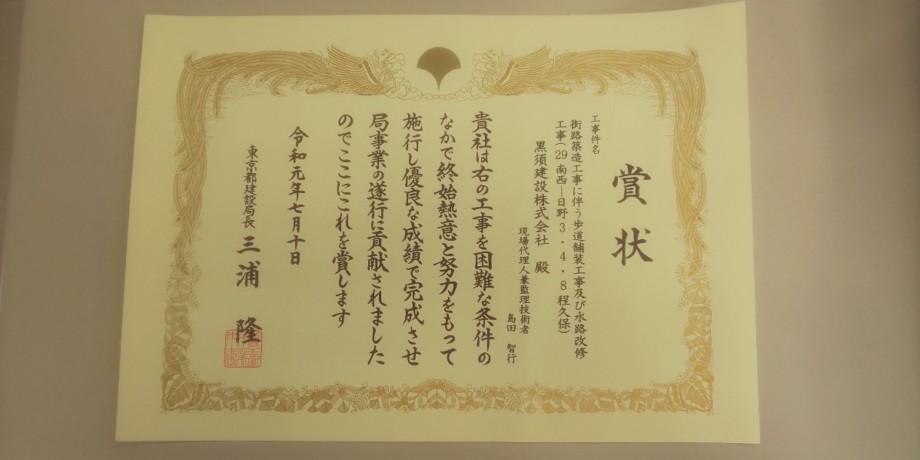 賞状
工事件名
街路築造工事に伴う歩道舗装工事及び水路改修
工事(29南西―日野3・4・8程久保)
黒須建設株式会社 殿
現場代理人兼監理技術者
島田 智行
貴社は右の工事を困難な条件の
なかで終始熱意と努力をもって
施行し優良な成績で完成させ
局事業の遂行に貢献されました
のでここにこれを賞します
令和元年七月十日
東京都建設局長 三浦 隆